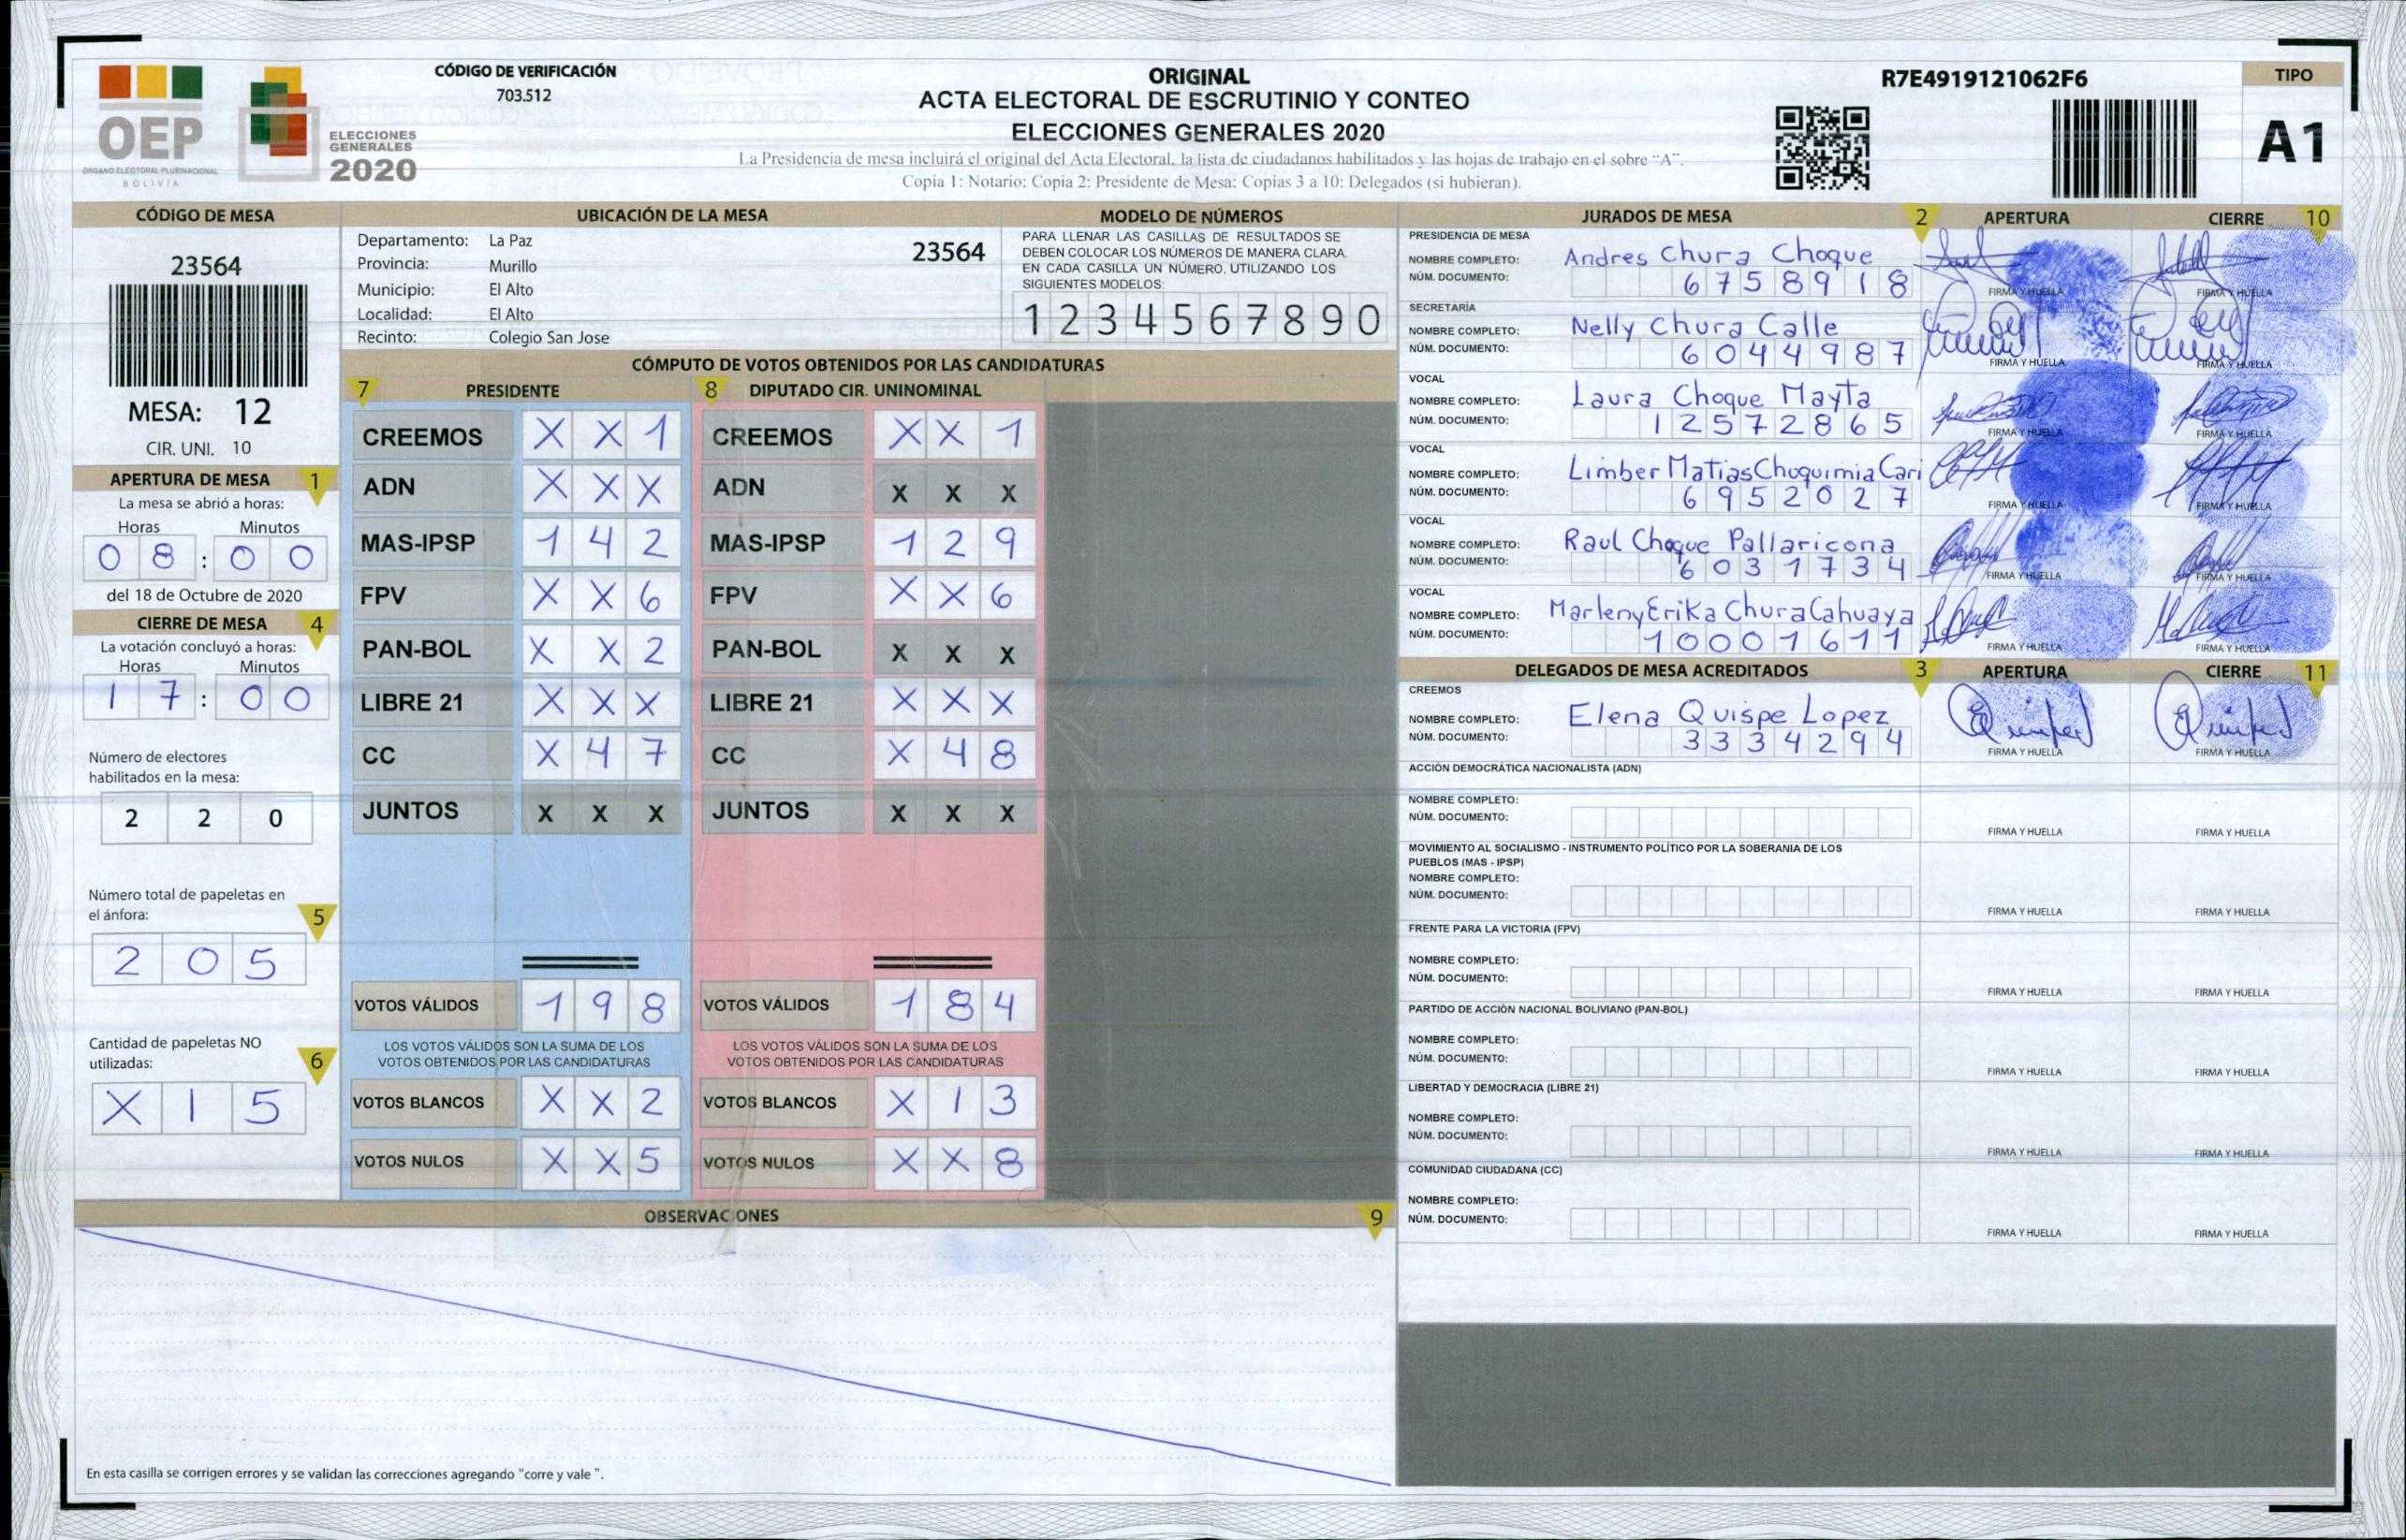 OEP
ÓRGANO ELECTORAL PLURINACIONAL
BOLIVIA
ELECCIONES
GENERALES
2020
CÓDIGO DE VERIFICACIÓN
703.512
ORIGINAL
ACTA ELECTORAL DE ESCRUTINIO Y CONTEO
ELECCIONES GENERALES 2020
La Presidencia de mesa incluirá el original del Acta Electoral, la lista de ciudadanos habilitados y las hojas de trabajo en el sobre "A".
Copia 1: Notario; Copia 2: Presidente de Mesa; Copias 3 a 10: Delegados (si hubieran).
R7E4919121062F6
TIPO
A1
CÓDIGO DE MESA
23564
MESA: 12
CIR. UNI. 10
APERTURA DE MESA 1
La mesa se abrió a horas:
Horas Minutos
0 8 : 0 0
del 18 de Octubre de 2020
CIERRE DE MESA 4
La votación concluyó a horas:
Horas Minutos
1 7 : 0 0
Número de electores
habilitados en la mesa:
2 2 0
Número total de papeletas en
el ánfora: 5
2 0 5
Cantidad de papeletas NO
utilizadas: 6
X 1 5
UBICACIÓN DE LA MESA
Departamento: La Paz 23564
Provincia: Murillo
Municipio: El Alto
Localidad: El Alto
Recinto: Colegio San Jose
MODELO DE NÚMEROS
PARA LLENAR LAS CASILLAS DE RESULTADOS SE
DEBEN COLOCAR LOS NÚMEROS DE MANERA CLARA,
EN CADA CASILLA UN NÚMERO, UTILIZANDO LOS
SIGUIENTES MODELOS:
1 2 3 4 5 6 7 8 9 0
CÓMPUTO DE VOTOS OBTENIDOS POR LAS CANDIDATURAS
7 PRESIDENTE 8 DIPUTADO CIR. UNINOMINAL
CREEMOS X X 1 CREEMOS X X 1
ADN X X X ADN X X X
MAS-IPSP 1 4 2 MAS-IPSP 1 2 9
FPV X X 6 FPV X X 6
PAN-BOL X X 2 PAN-BOL X X X
LIBRE 21 X X X LIBRE 21 X X X
CC X 4 7 CC X 4 8
JUNTOS X X X JUNTOS X X X
VOTOS VÁLIDOS 1 9 8 VOTOS VÁLIDOS 1 8 4
LOS VOTOS VÁLIDOS SON LA SUMA DE LOS LOS VOTOS VÁLIDOS SON LA SUMA DE LOS
VOTOS OBTENIDOS POR LAS CANDIDATURAS VOTOS OBTENIDOS POR LAS CANDIDATURAS
VOTOS BLANCOS X X 2 VOTOS BLANCOS X 1 3
VOTOS NULOS X X 5 VOTOS NULOS X X 8
OBSERVACIONES 9
En esta casilla se corrigen errores y se validan las correcciones agregando "corre y vale ".
JURADOS DE MESA 2 APERTURA CIERRE 10
PRESIDENCIA DE MESA
NOMBRE COMPLETO: Andres Chura Choque
NÚM. DOCUMENTO: 6 7 5 8 9 1 8 FIRMA Y HUELLA FIRMA Y HUELLA
SECRETARÍA
NOMBRE COMPLETO: Nelly Chura Calle
NÚM. DOCUMENTO: 6 0 4 4 9 8 7 FIRMA Y HUELLA FIRMA Y HUELLA
VOCAL
NOMBRE COMPLETO: Laura Choque Mayta
NÚM. DOCUMENTO: 1 2 5 7 2 8 6 5 FIRMA Y HUELLA FIRMA Y HUELLA
VOCAL
NOMBRE COMPLETO: Limber Matias Choquimia Cari
NÚM. DOCUMENTO: 6 9 5 2 0 2 7 FIRMA Y HUELLA FIRMA Y HUELLA
VOCAL
NOMBRE COMPLETO: Raul Choque Pallaricona
NÚM. DOCUMENTO: 6 0 3 1 7 3 4 FIRMA Y HUELLA FIRMA Y HUELLA
VOCAL
NOMBRE COMPLETO: Marleny Erika Chura Cahuaya
NÚM. DOCUMENTO: 1 0 0 0 1 6 1 1 FIRMA Y HUELLA FIRMA Y HUELLA
DELEGADOS DE MESA ACREDITADOS 3 APERTURA CIERRE 11
CREEMOS
NOMBRE COMPLETO: Elena Quispe Lopez
NÚM. DOCUMENTO: 3 3 3 4 2 9 4 FIRMA Y HUELLA FIRMA Y HUELLA
ACCIÓN DEMOCRÁTICA NACIONALISTA (ADN)
NOMBRE COMPLETO:
NÚM. DOCUMENTO: FIRMA Y HUELLA FIRMA Y HUELLA
MOVIMIENTO AL SOCIALISMO - INSTRUMENTO POLÍTICO POR LA SOBERANIA DE LOS
PUEBLOS (MAS - IPSP)
NOMBRE COMPLETO:
NÚM. DOCUMENTO: FIRMA Y HUELLA FIRMA Y HUELLA
FRENTE PARA LA VICTORIA (FPV)
NOMBRE COMPLETO:
NÚM. DOCUMENTO: FIRMA Y HUELLA FIRMA Y HUELLA
PARTIDO DE ACCIÓN NACIONAL BOLIVIANO (PAN-BOL)
NOMBRE COMPLETO:
NÚM. DOCUMENTO: FIRMA Y HUELLA FIRMA Y HUELLA
LIBERTAD Y DEMOCRACIA (LIBRE 21)
NOMBRE COMPLETO:
NÚM. DOCUMENTO: FIRMA Y HUELLA FIRMA Y HUELLA
COMUNIDAD CIUDADANA (CC)
NOMBRE COMPLETO:
NÚM. DOCUMENTO: FIRMA Y HUELLA FIRMA Y HUELLA